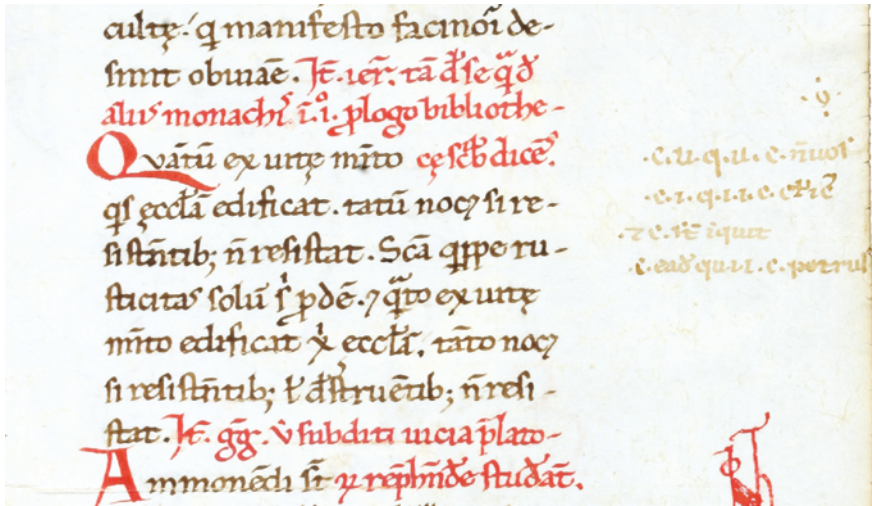 cultę. q manifesto facinori de-
sinit obuiāe. It. ier. tā d̄ se q̄ꝫ d̄
alius monachꝰ ī .i. ꝓlogo bibliothe-
Qvātū ex uitę mīto cę scb̄ dicēs.
q̄s ęccl̄ā edificat. tātū nocꝫ si re-
sistētib; n̄ resistat. Scā q̄ppe ru-
sticitas solū s̄ ꝓdē. ⁊ q̄ꝫto ex uitę
mīto edificat x̄ ęccl̄ā. tāto nocꝫ
si resistētib; ł d̄struētib; n̄ resi-
stat. It. gḡ. v̄ subditi uicia p̄lato-
Ammonēdi st̄ ꝝ rep̄hn̄de studeāt.
.c.u.q.u.c. n̄uos
.c.i.q.i.i.c.
⁊ c. it̄ īquit
.c. ead̄ q̄ u.i.i.c. petrus